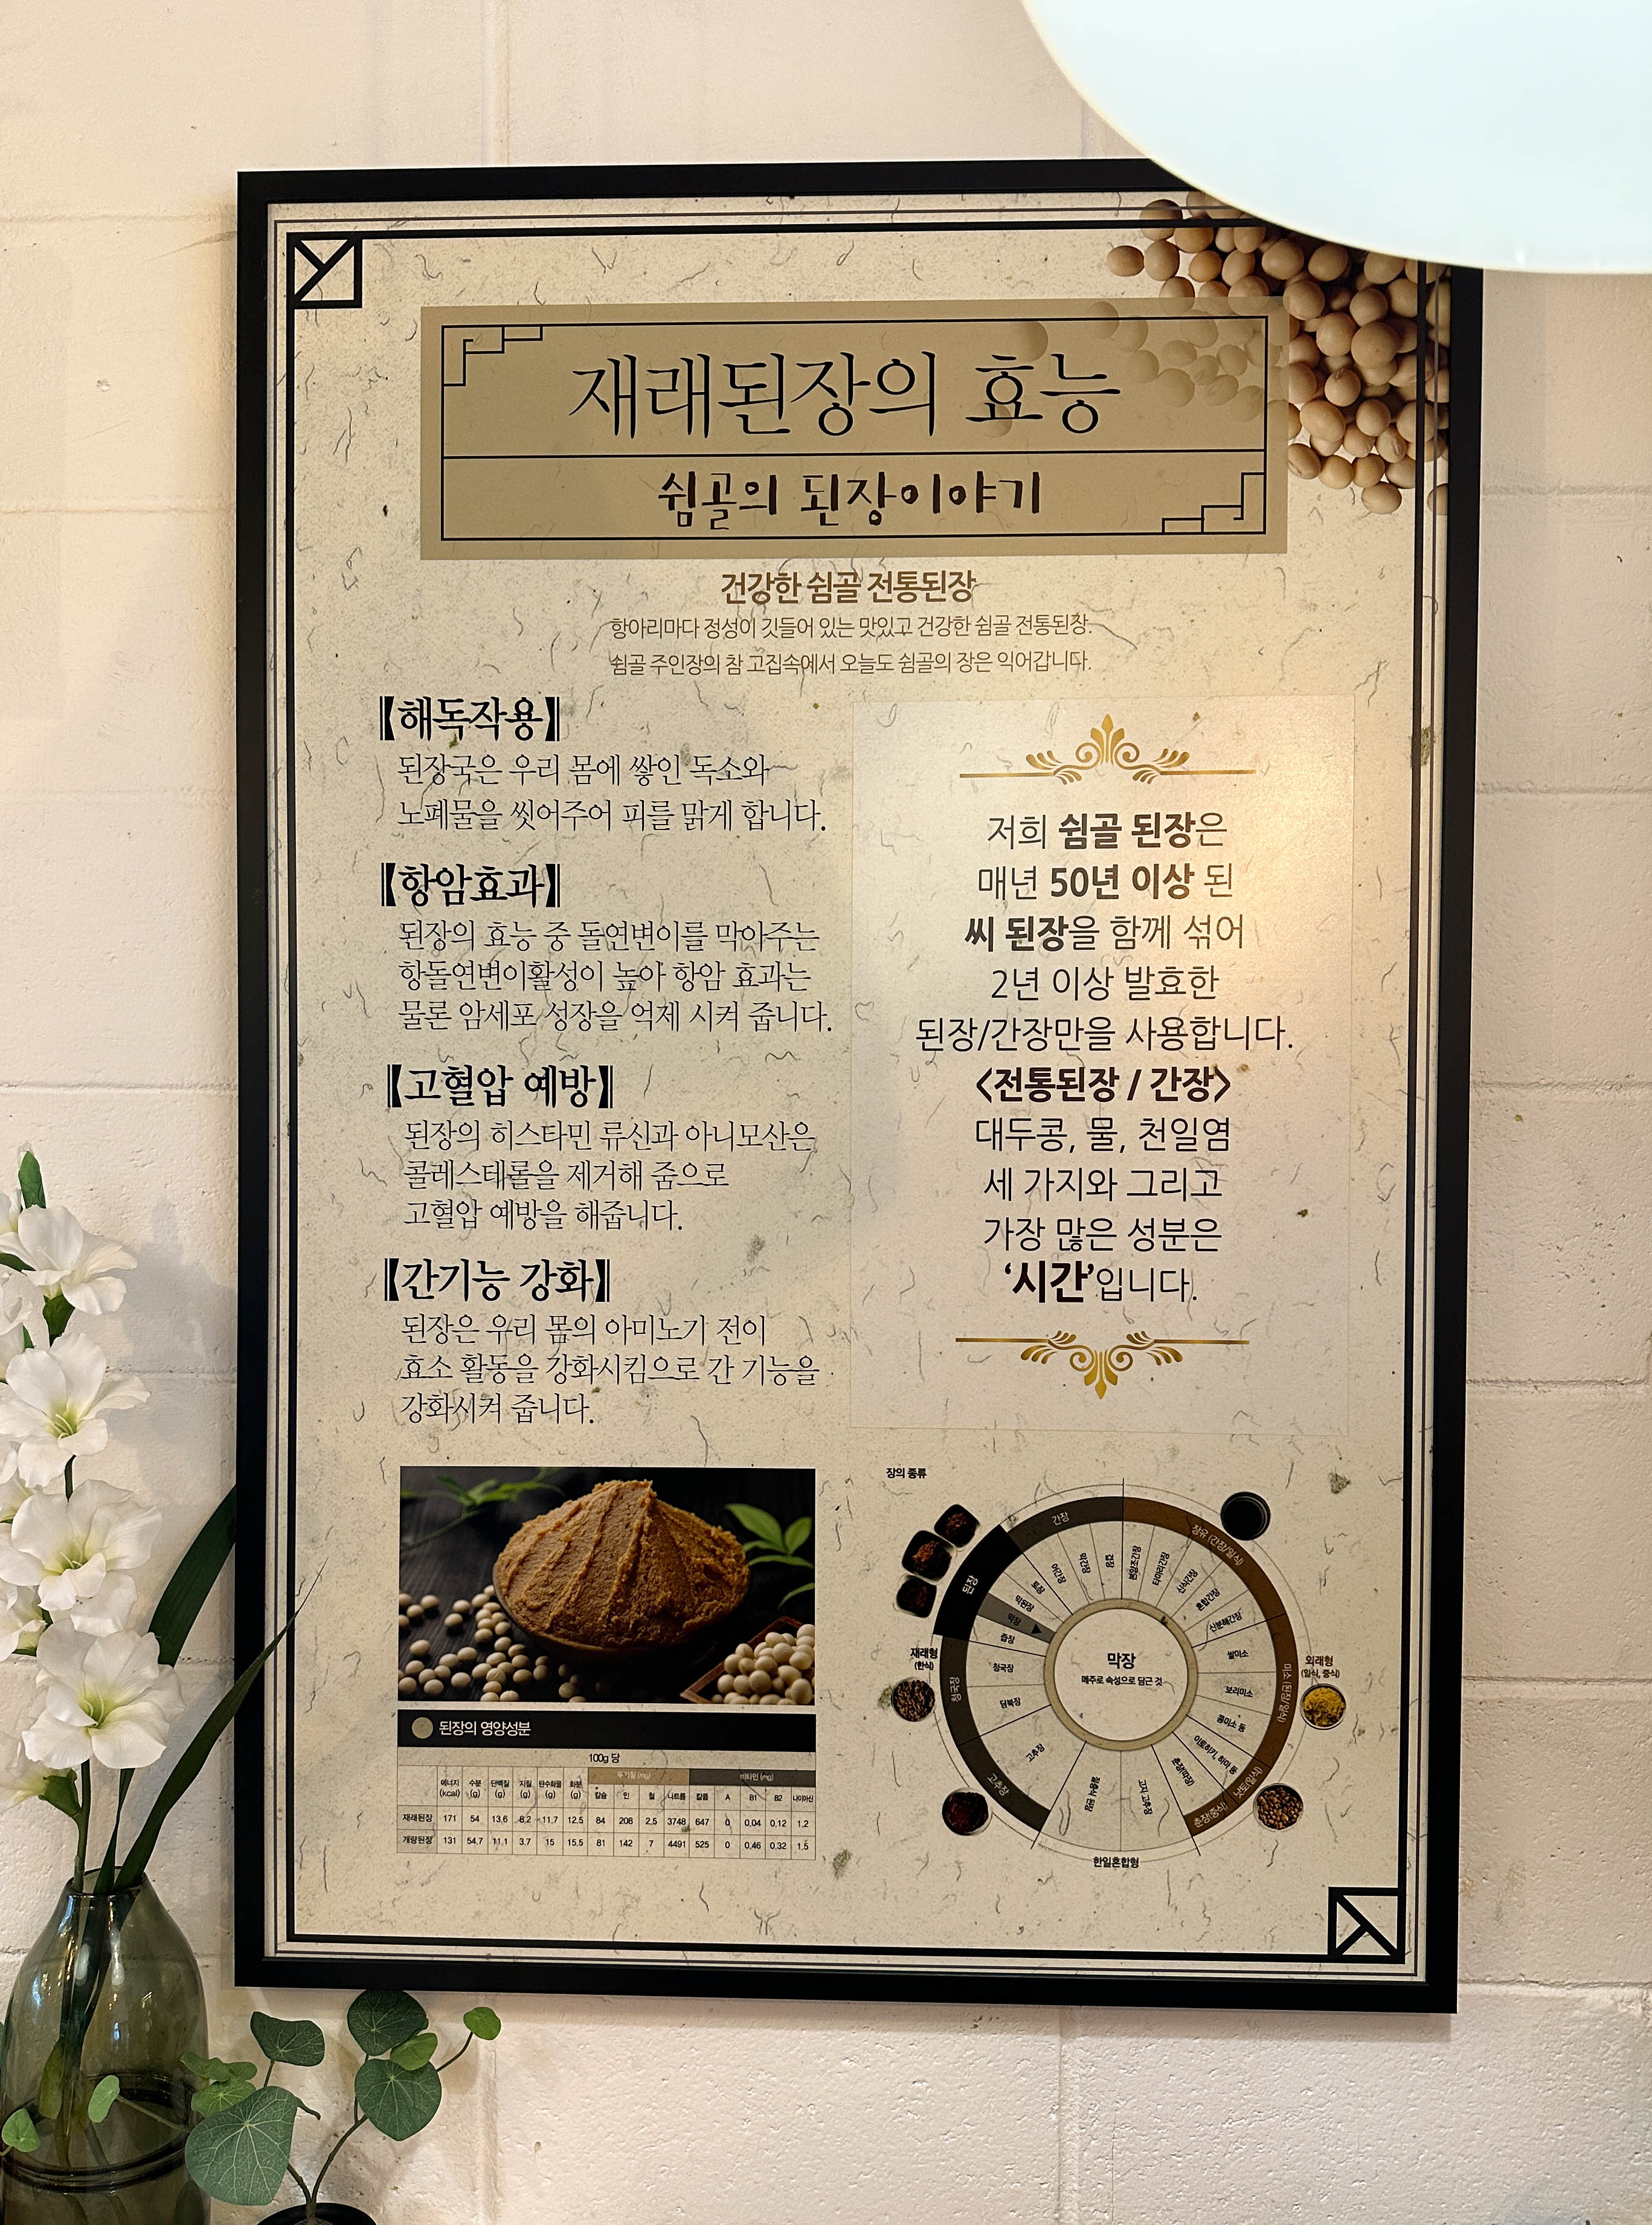 재래된장의 효능
쉼골의 된장이야기
건강한 쉼골 전통된장
항아리마다 정성이 깃들어 있는 맛있고 건강한 쉼골 전통된장.
쉼골 주인장의 참 고집속에서 오늘도 쉼골의 장은 익어갑니다.
【해독작용】
된장국은 우리 몸에 쌓인 독소와
노폐물을 씻어주어 피를 맑게 합니다.
【항암효과】
된장의 효능 중 돌연변이를 막아주는
항돌연변이활성이 높아 항암 효과는
물론 암세포 성장을 억제 시켜 줍니다.
【고혈압 예방】
된장의 히스타민 류신과 아니모산은
콜레스테롤을 제거해 줌으로
고혈압 예방을 해줍니다.
【간기능 강화】
된장은 우리 몸의 아미노기 전이
효소 활동을 강화시킴으로 간 기능을
강화시켜 줍니다.
저희 쉼골 된장은
매년 50년 이상 된
씨 된장을 함께 섞어
2년 이상 발효한
된장/간장만을 사용합니다.
<전통된장 / 간장>
대두콩, 물, 천일염
세 가지와 그리고
가장 많은 성분은
‘시간’입니다.
된장의 영양성분
100g 당
무기질 (mg) 비타민 (mg)
에너지 (kcal) 수분 (g) 단백질 (g) 지질 (g) 탄수화물 (g) 화분 (g) 칼슘 인 철 나트륨 칼륨 A B1 B2 나이아신
재래된장 171 54 13.6 8.2 11.7 12.5 84 208 2.5 3748 647 0 0.04 0.12 1.2
개량된장 131 54.7 11.1 3.7 15 15.5 81 142 7 4491 525 0 0.46 0.32 1.5
장의 종류
간장
장유 (간장/일식)
미소 (된장/일식)
낫토(일식)
춘장(중식)
고추장
청국장
된장
재래형
(한식)
외래형
(일식, 중식)
한일혼합형
막장
메주로 속성으로 담근 것
어간장
막간장
겹장
본양조간장
타마리간장
산식간장
혼합간장
신분해간장
쌀미소
보리미소
콩미소 등
이토히키, 하마 등
춘장(막장)
고지 고추장
절충식 된장
고추장
담북장
청국장
즙장
막장
막된장
토장